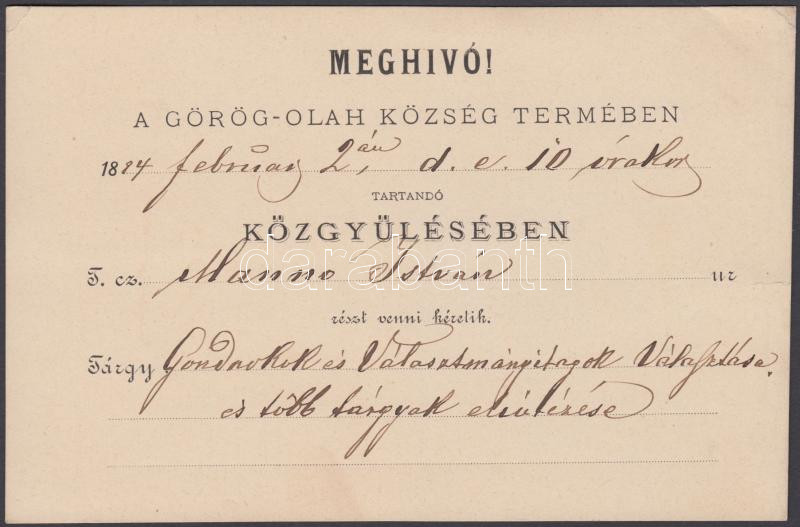 MEGHIVÓ!
A GÖRÖG-OLAH KÖZSÉG TERMÉBEN
1894 február 2án, d. e. 10 órakor
TARTANDÓ
KÖZGYÜLÉSÉBEN
T. cz. Manno István ur
részt venni kéretik.
Tárgy Gondnokok és Választmányitagok Választása,
és több tárgyak elintézése
darabanth